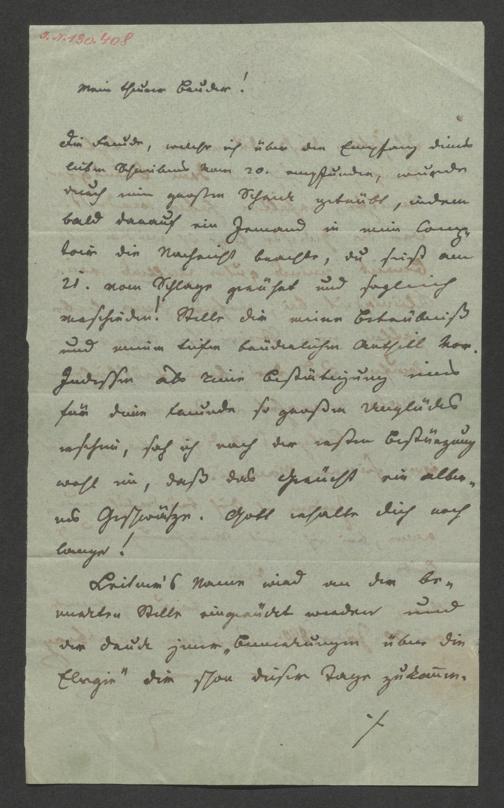 I.N. 130.408
Mein theurer Bruder!
Die Freude, welche ich über den Empfang deines
lieben Schreibens vom 20. empfunden, wurde
durch einen großen Schreck getrübt, indem
bald darauf ein Jemand in mein Comp-
toir die Nachricht brachte, du seist am
21. vom Schlage gerührt und sogleich
verschieden! Stelle dir meine Betrübniß
und meinen tiefen brüderlichen Antheil vor.
Indessen als keine Bestätigung eines
für deine Freunde so großen Unglückes
erschien, sah ich nach der ersten Bestürzung
wohl ein, daß das Gerücht ein alber-
nes Geschwätze. Gott erhalte dich noch
lange!
Leitner's Name wird an der be-
merkten Stelle eingerückt werden und
der Druck jener „Bemerkungen über die
Elegie" dir schon dieser Tage zukommen.
./.